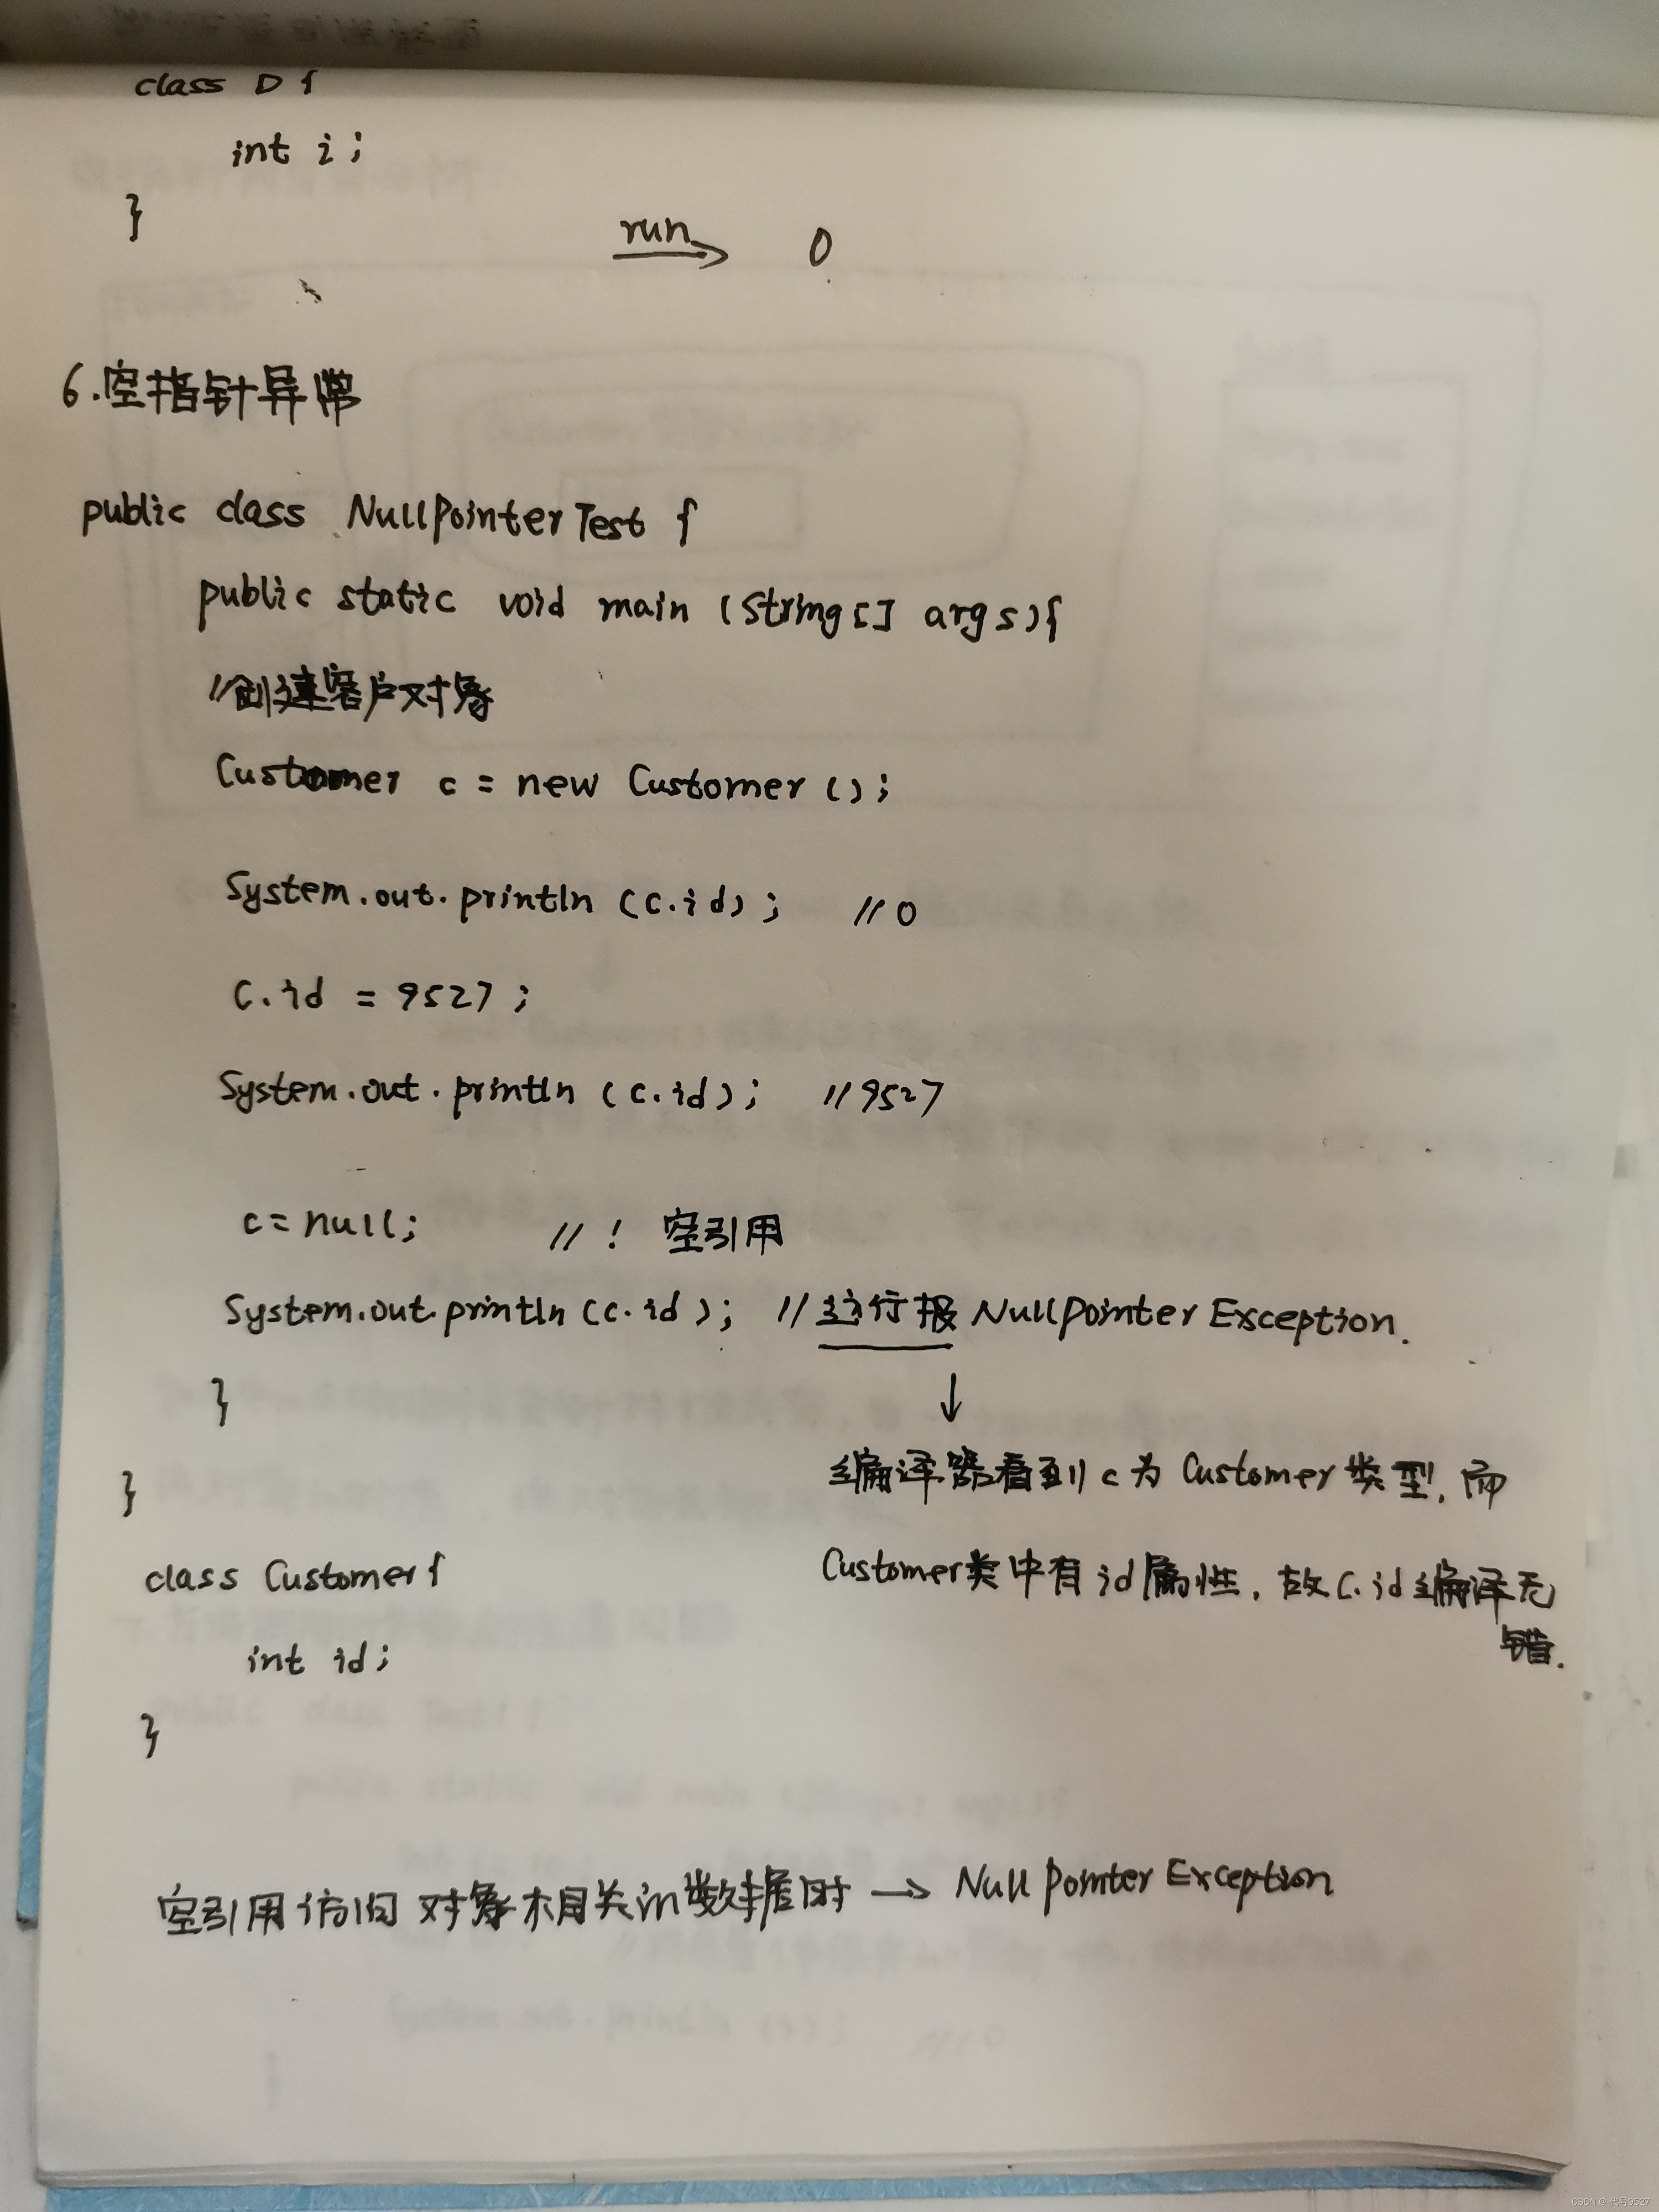 class D {
int i;
}
run 0
6.空指针异常
public class NullPointerTest {
public static void main (String[] args){
//创建客户对象
Customer c = new Customer ();
System.out.println (c.id); //0
c.id = 9527;
System.out.println (c.id); //9527
c=null; //! 空引用
System.out.println (c.id); //这行报 NullPointerException.
}
↓
编译器看到c为Customer类型,而
}
Customer类中有id属性,故c.id编译无
错.
class Customer{
int id;
}
空引用访问对象相关的数据时 → NullPointerException
CSDN @代号9527